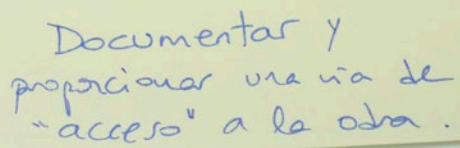 Documentar y
proporcionar una vía de
"acceso" a la obra.